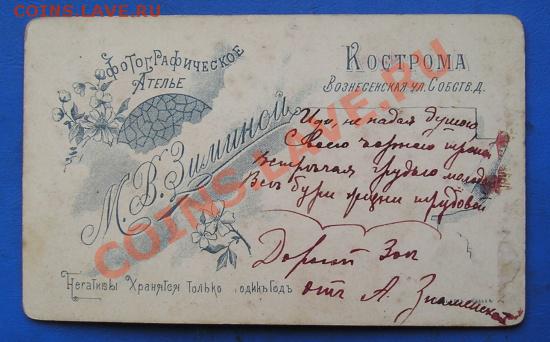 COINS.LAVE.RU
ФОТОГРАФИЧЕСКОЕ
АТЕЛЬЕ
М. В. Зиминой.
КОСТРОМА
ВОЗНЕСЕНСКАЯ УЛ. СОБСТВ. Д.
Иди, не падая душою
Своею
Встрѣчая грудью
Всѣ бури жизни трудовой
Дорогой Зои
отъ А.
Негативы Хранятся Только одинъ годъ
COINS.LAVE.RU